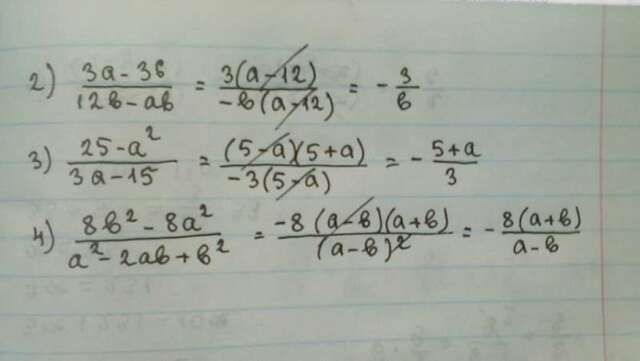 2) (3a - 36)/(12b - ab) = 3(a - 12)/(-b(a - 12)) = - 3/b
3) (25 - a²)/(3a - 15) = (5 - a)(5 + a)/(-3(5 - a)) = - (5 + a)/3
4) (8b² - 8a²)/(a² - 2ab + b²) = -8(a - b)(a + b)/(a - b)² = - 8(a + b)/(a - b)